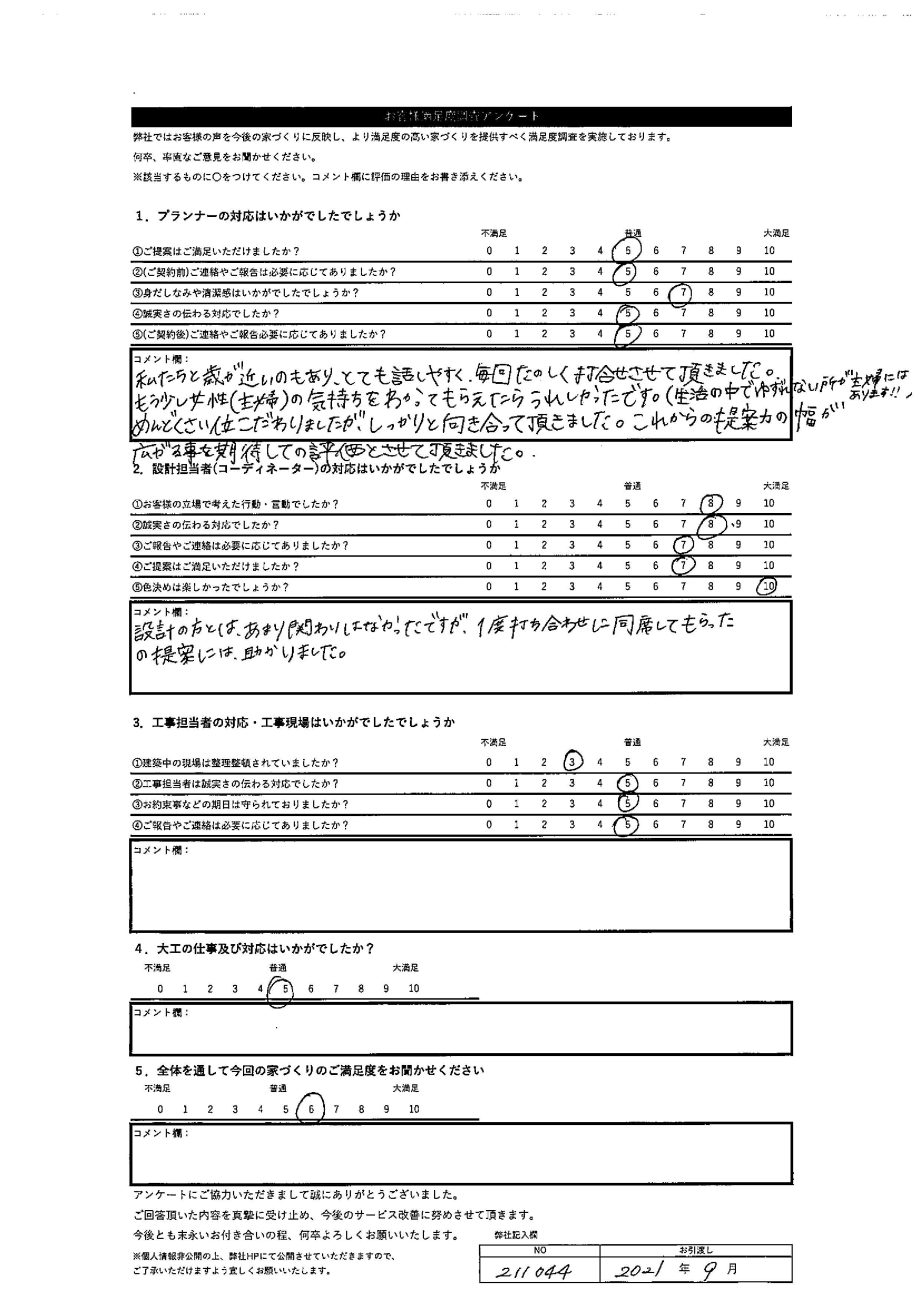 お客様満足度調査アンケート
弊社ではお客様の声を今後の家づくりに反映し、より満足度の高い家づくりを提供すべく満足度調査を実施しております。
何卒、率直なご意見をお聞かせください。
※該当するものに〇をつけてください。コメント欄に評価の理由をお書き添えください。
1．プランナーの対応はいかがでしたでしょうか
不満足 普通 大満足
①ご提案はご満足いただけましたか？ 0 1 2 3 4 5 6 7 8 9 10
②(ご契約前)ご連絡やご報告は必要に応じてありましたか？ 0 1 2 3 4 5 6 7 8 9 10
③身だしなみや清潔感はいかがでしたでしょうか？ 0 1 2 3 4 5 6 7 8 9 10
④誠実さの伝わる対応でしたか？ 0 1 2 3 4 5 6 7 8 9 10
⑤(ご契約後)ご連絡やご報告必要に応じてありましたか？ 0 1 2 3 4 5 6 7 8 9 10
コメント欄：
私たちと歳が近いのもあり、とても話しやすく、毎回たのしく打合せさせて頂きました。
もう少し女性(主婦)の気持ちをわかってもらえたらうれしかったです。(生活の中でゆずれない所が主婦にはあります!!)
めんどくさい位こだわりましたが、しっかりと向き合って頂きました。これからの提案力の幅が
広がる事を期待しての評価とさせて頂きました。
2．設計担当者(コーディネーター)の対応はいかがでしたでしょうか
不満足 普通 大満足
①お客様の立場で考えた行動・言動でしたか？ 0 1 2 3 4 5 6 7 8 9 10
②誠実さの伝わる対応でしたか？ 0 1 2 3 4 5 6 7 8 9 10
③ご報告やご連絡は必要に応じてありましたか？ 0 1 2 3 4 5 6 7 8 9 10
④ご提案はご満足いただけましたか？ 0 1 2 3 4 5 6 7 8 9 10
⑤色決めは楽しかったでしょうか？ 0 1 2 3 4 5 6 7 8 9 10
コメント欄：
設計の方とは、あまり関わりはなかったですが、1度打ち合わせに同席してもらった
の提案には、助かりました。
3．工事担当者の対応・工事現場はいかがでしたでしょうか
不満足 普通 大満足
①建築中の現場は整理整頓されていましたか？ 0 1 2 3 4 5 6 7 8 9 10
②工事担当者は誠実さの伝わる対応でしたか？ 0 1 2 3 4 5 6 7 8 9 10
③お約束事などの期日は守られておりましたか？ 0 1 2 3 4 5 6 7 8 9 10
④ご報告やご連絡は必要に応じてありましたか？ 0 1 2 3 4 5 6 7 8 9 10
コメント欄：
4．大工の仕事及び対応はいかがでしたか？
不満足 普通 大満足
0 1 2 3 4 5 6 7 8 9 10
コメント欄：
5．全体を通して今回の家づくりのご満足度をお聞かせください
不満足 普通 大満足
0 1 2 3 4 5 6 7 8 9 10
コメント欄：
アンケートにご協力いただきまして誠にありがとうございました。
ご回答頂いた内容を真摯に受け止め、今後のサービス改善に努めさせて頂きます。
今後とも末永いお付き合いの程、何卒よろしくお願いいたします。
弊社記入欄
※個人情報非公開の上、弊社HPにて公開させていただきますので、
ご了承いただけますよう宜しくお願いいたします。
NO お引渡し
211044 2021 年 9 月